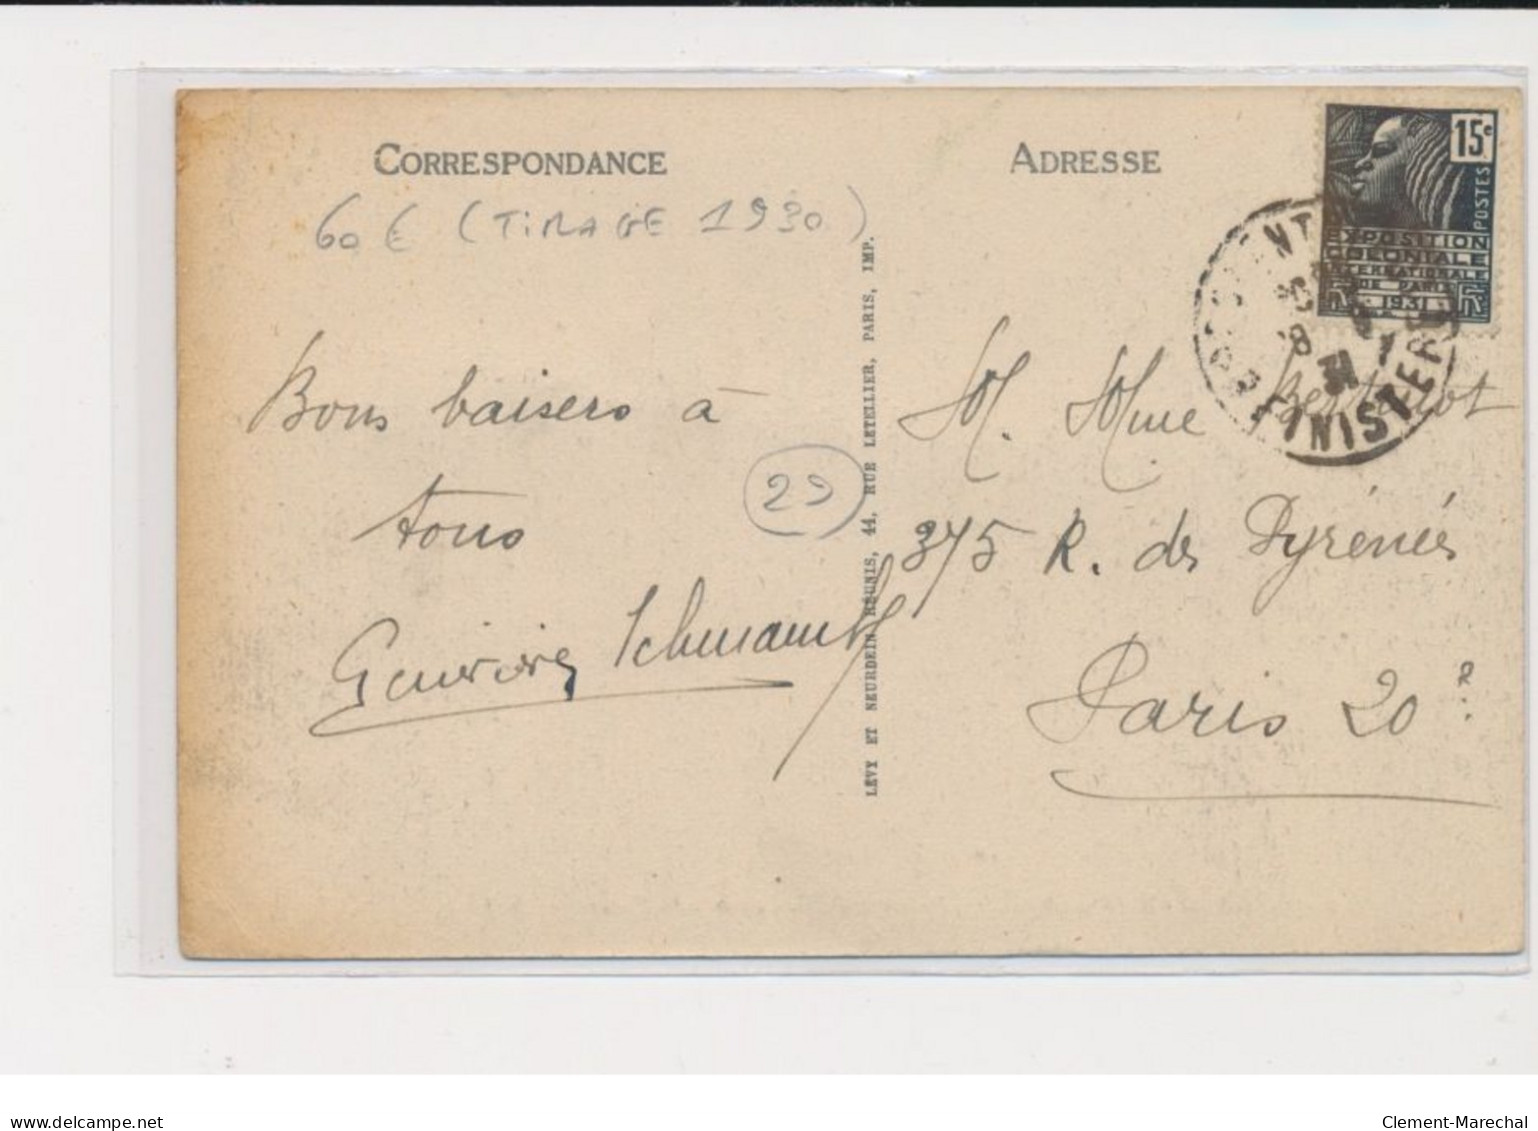 CORRESPONDANCE
60 € (TIRAGE 1930)
Bons baisers à
tous
29
LÉVY ET NEURDEIN RÉUNIS, 44, RUE LETELLIER, PARIS, IMP.
ADRESSE
15c
POSTES
EXPOSITION
COLONIALE
INTERNATIONALE
DE PARIS
1931
FINISTERE
M. Mme
375 R. des Pyrénées
Paris 20e
delcampe.net
Clement-Marechal